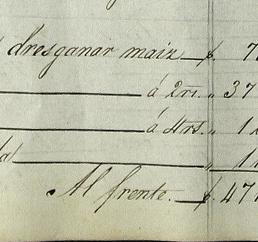 desganar maiz — $. 7
á 2 rs. " 37
á 4 rs. " 1
" 1
Al frente. — $. 47